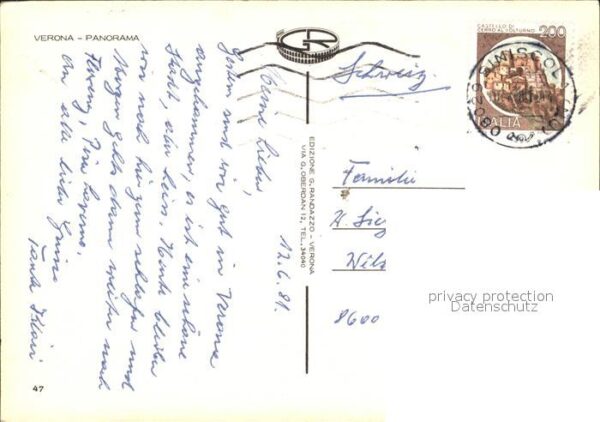 VERONA - PANORAMA
GR
CASTELLO DI
CERRO AL VOLTURNO
200
ITALIA
SINISCOLA
08029
Meine Lieben,
Gestern sind wir gut in Verona
angekommen, es ist eine schöne
Stadt, aber heis. Heute bleiben
wir noch hier zum schlafen und
Morgen gehts dann weiter nach
Florenz, Pisa
An alle liebe Grüsse
Tante
12.6.81.
EDIZIONE G. RANDAZZO - VERONA
VIA G. OBERDAN 12, TEL. 34040
Schweiz
Familie
8600
privacy protection
Datenschutz
47